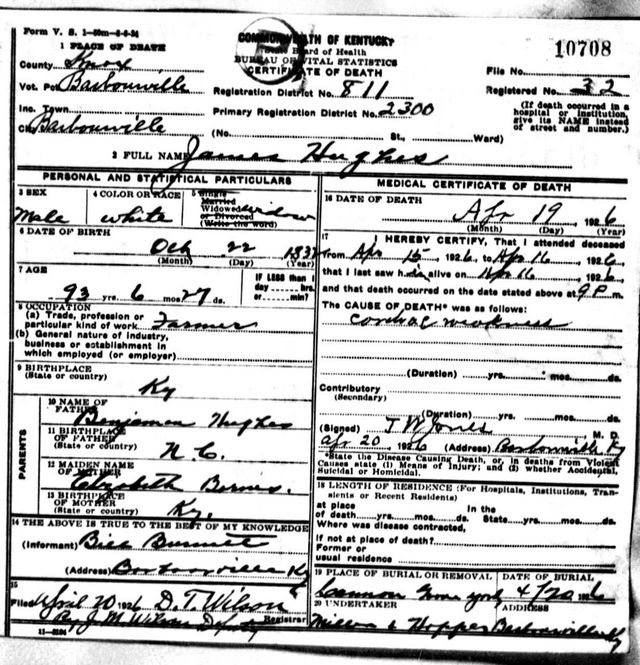 Form V. S. 1-50m-5-6-24
COMMONWEALTH OF KENTUCKY
State Board of Health
BUREAU OF VITAL STATISTICS
CERTIFICATE OF DEATH
10708
1 PLACE OF DEATH
County Knox
File No.
Vot. Pct Barbourville
Registration District No. 811
Registered No. 32
Inc. Town
Primary Registration District No. 2300
(If death occurred in a
hospital or institution,
give its NAME instead
of street and number.)
City Barbourville
(No. St., Ward)
2 FULL NAME James Hughes
PERSONAL AND STATISTICAL PARTICULARS
3 SEX
Male
4 COLOR OR RACE
white
5 Single
Married
Widowed
or Divorced
(Write the word)
widow
6 DATE OF BIRTH
Oct 22 1832
(Month) (Day) (Year)
7 AGE
93 yrs. 6 mos. 27 ds.
IF LESS than 1
day hrs.
or min?
8 OCCUPATION
(a) Trade, profession or
particular kind of work Farmer
(b) General nature of industry,
business or establishment in
which employed (or employer)
9 BIRTHPLACE
(State or country)
Ky
PARENTS
10 NAME OF
FATHER
Benjaman Hughes
11 BIRTHPLACE
OF FATHER
(State or country)
N C.
12 MAIDEN NAME
OF MOTHER
Elizabeth
13 BIRTHPLACE
OF MOTHER
(State or country)
Ky.
14 THE ABOVE IS TRUE TO THE BEST OF MY KNOWLEDGE
(Informant) Bill Burnett
(Address) Ky
15
Filed April 20 1926 D. T. Wilson
Registrar
By J. M. Wilson Deputy
11-3184
MEDICAL CERTIFICATE OF DEATH
16 DATE OF DEATH
Apr 19 1926
(Month) (Day) (Year)
17
I HEREBY CERTIFY, That I attended deceased
from Apr 15 1926, to Apr 16 1926,
that I last saw h alive on Apr 16 1926,
and that death occurred on the date stated above at 9 P m.
The CAUSE OF DEATH* was as follows:
weakness
(Duration) yrs. mos. ds.
Contributory
(Secondary)
(Duration) yrs. mos. ds.
(Signed) J W Jones M. D.
apr 20 1926 (Address) Barbourville Ky
*State the Disease Causing Death, or, in deaths from Violent
Causes state (1) Means of Injury; and (2) whether Accidental,
Suicidal or Homicidal.
18 LENGTH OF RESIDENCE (For Hospitals, Institutions, Tran-
sients or Recent Residents)
at place In the
of death yrs. mos. ds. State yrs. mos. ds.
Where was disease contracted,
if not at place of death?
Former or
usual residence
19 PLACE OF BURIAL OR REMOVAL
Cannon
DATE OF BURIAL
4/20 1926
20 UNDERTAKER
Hopper
ADDRESS
Barbourville Ky